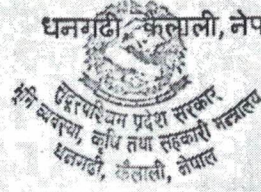 धनगढी, कैलाली, नेप
सुदूरपश्चिम प्रदेश सरकार
भूमि व्यवस्था, कृषि तथा सहकारी मन्त्रालय
धनगढी, कैलाली, नेपाल